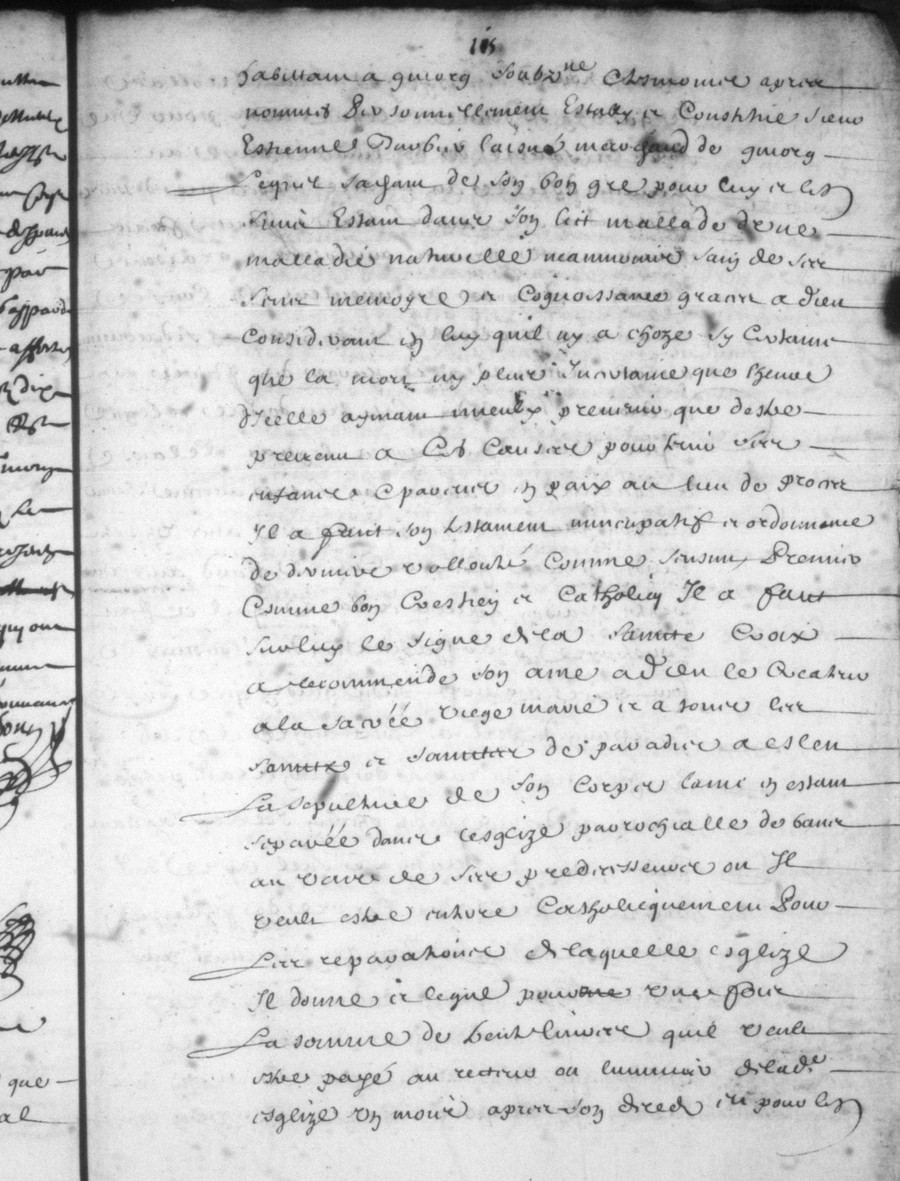 habittant a gniorg soubz ne tesmoines apres
nommes Personnellement Estably et Constitué sieur
Estienne laisné marchand de gniorg
Lequel sachant de son bon gre pour luy et les
siens Estant dans son lict mallade de une
malladie naturelle neanmoins sain de ses
sens memoyre et Cognoissance graces a dieu
Considerant en luy quil ny a choze sy Certaine
que la mort ny plus Incertaine que lheure
dicelle aymant mieux prevenir que destre
prevenu a Ces Causes pour tenir ses
enfans en paix au lieu de proces
Il a faict son testament nuncupatif et ordonnance
de derniere vollonté Comme sensuit Premier
Comme bon Crestien et Catholicq Il a faict
sur luy le signe de la Saincte Croix
a recommende son ame a dieu le Createur
a la sacrée vierge marie et a toutes les
Sainctz et Sainctes de paradis a esleu
La sepulture de son Corps et lame en estant
separée dans lesglize parrochialle de banes
au vas de ses predecesseurs ou Il
veult estre enterre Catholicquement Pour
Les reparations de laquelle esglize
Il donne et legue pour une fois
La somme de trente livres quil veult
estre payé au recteur ou luminier de lade
esglize un mois apres son deces et pour les